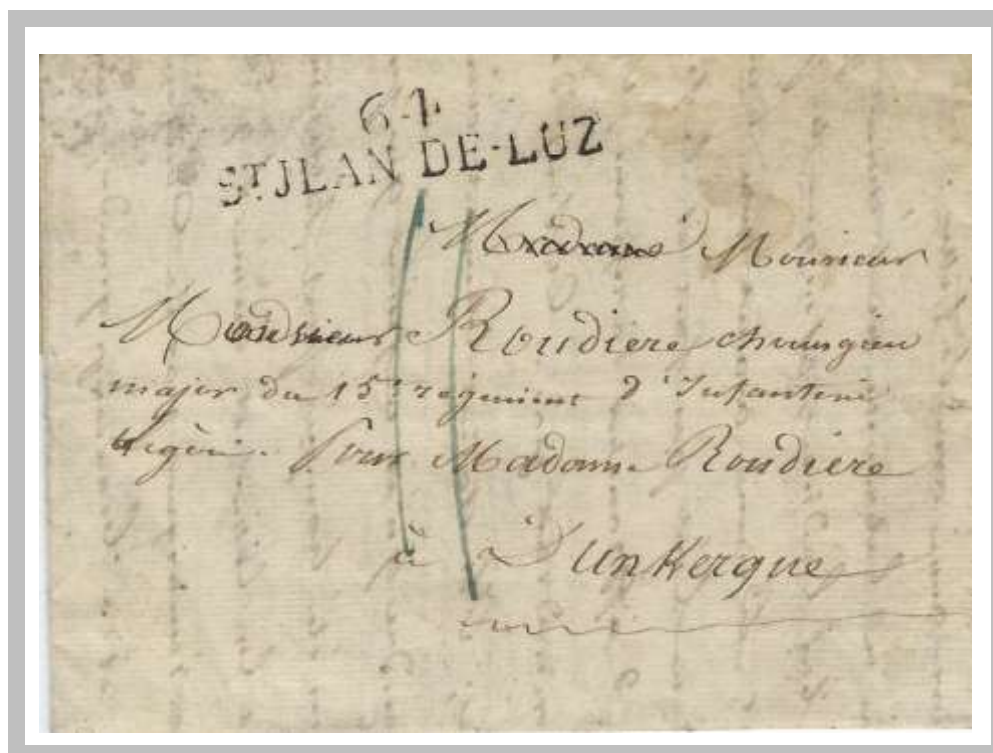 64
ST JEAN DE-LUZ
Monsieur
Monsieur Roudiere chirurgien
major du 15e régiment d'Infanterie
légère. Pour Madame Roudiere
à Dunkerque